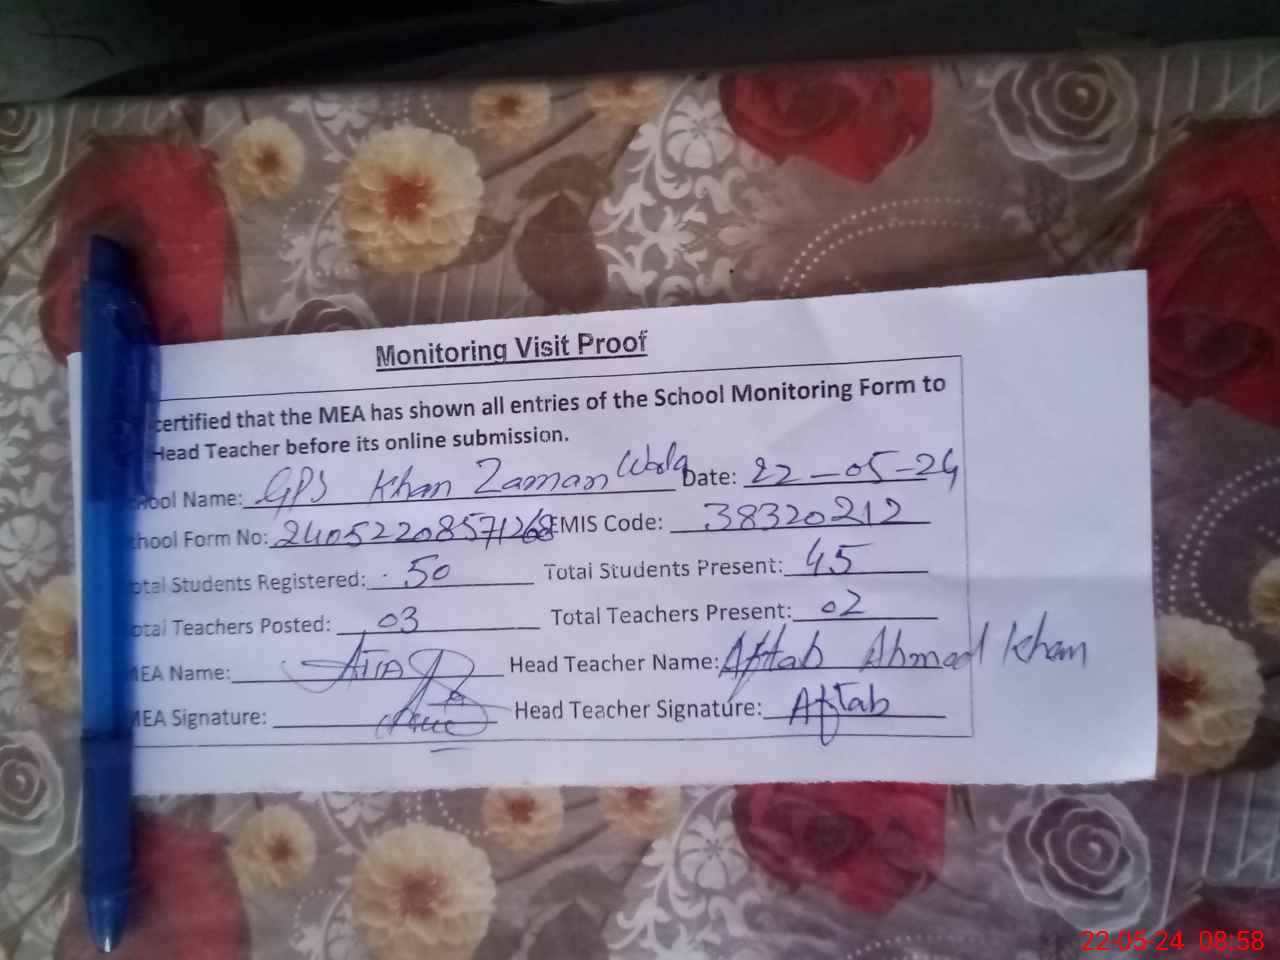 Monitoring Visit Proof
certified that the MEA has shown all entries of the School Monitoring Form to
Head Teacher before its online submission.
hool Name: GPS Khan Zaman Wala Date: 22-05-24
chool Form No: 24052208571268 EMIS Code: 38320212
otal Students Registered: 50 Total Students Present: 45
otal Teachers Posted: 03 Total Teachers Present: 02
MEA Name: Head Teacher Name: Aftab Ahmad Khan
MEA Signature: Head Teacher Signature: Aftab
22-05-24 08:58